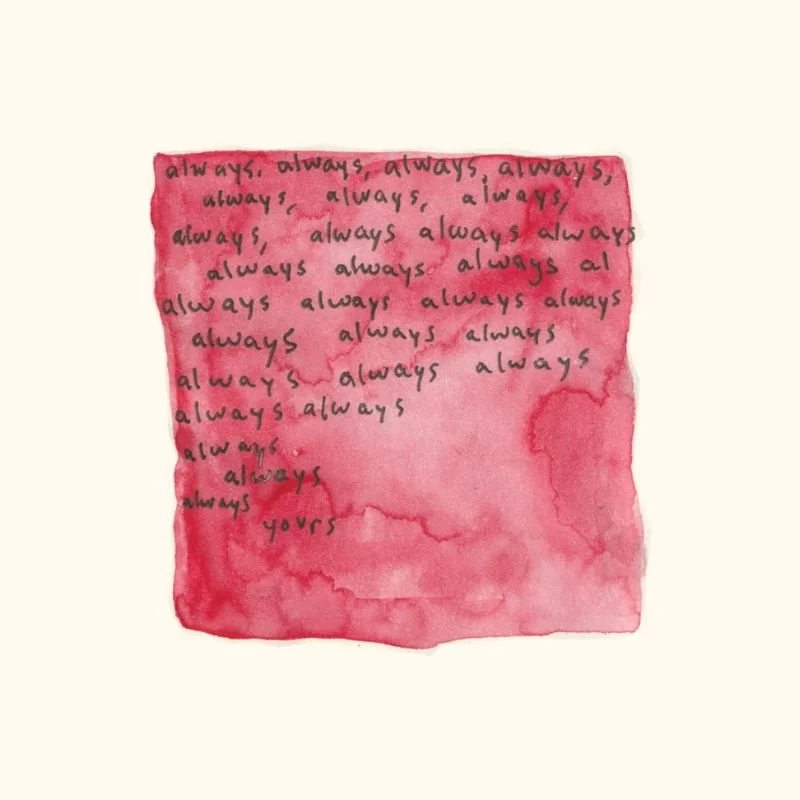 always. always, always, always,
always, always, always,
always, always always always
always always always al
always always always always
always always always
always always always
always always
always
always
always
yours